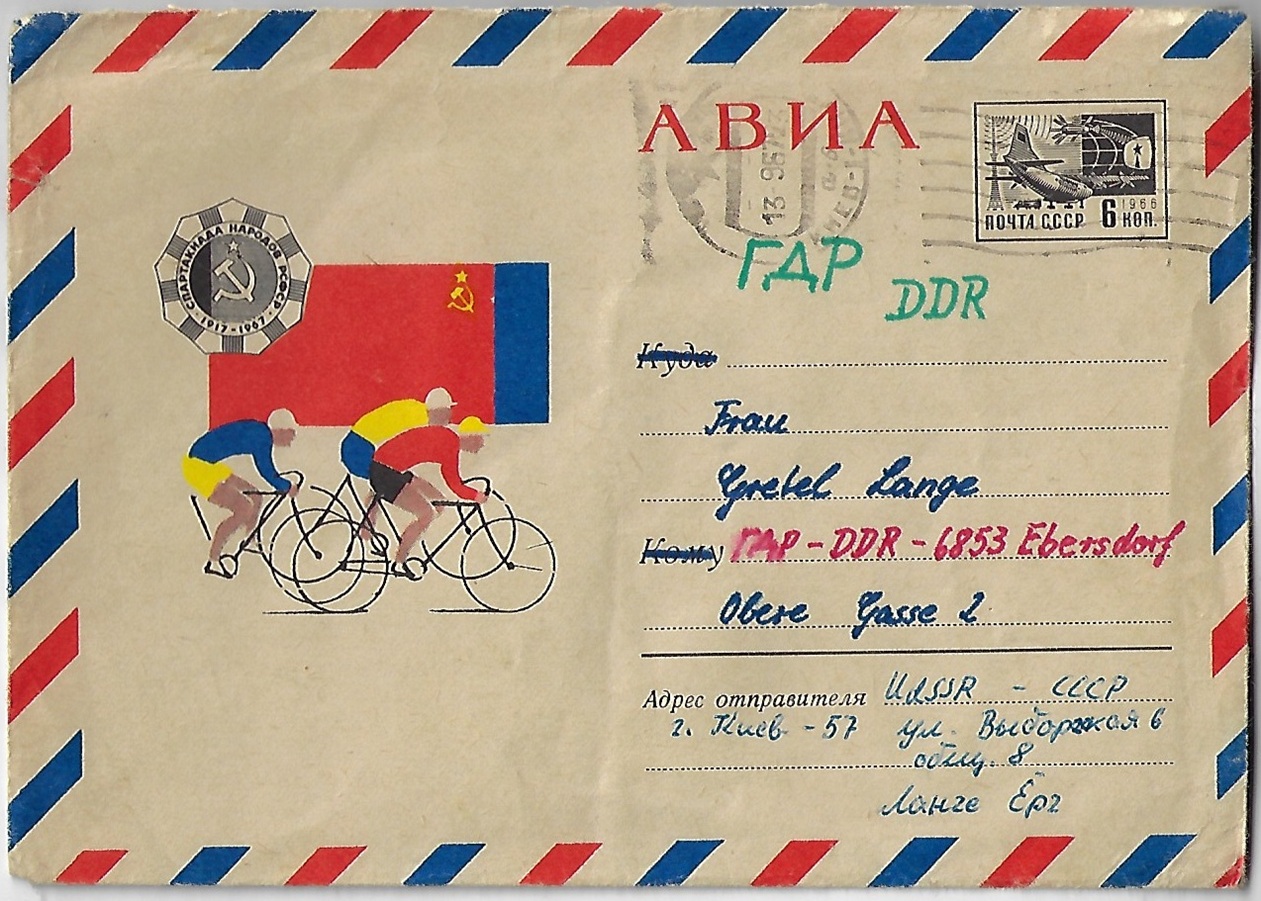 АВИА
13 9 67
1966
ПОЧТА СССР 6 КОП.
СПАРТАКИАДА НАРОДОВ РСФСР
1917-1967
ГДР
DDR
Куда
Frau
Gretel Lange
Кому ГДР - DDR - 6853 Ebersdorf
Obere Gasse 2
Адрес отправителя UdSSR - СССР
г. Киев - 57 ул. Выборжкая 6
общ. 8
Ланге Ёрг